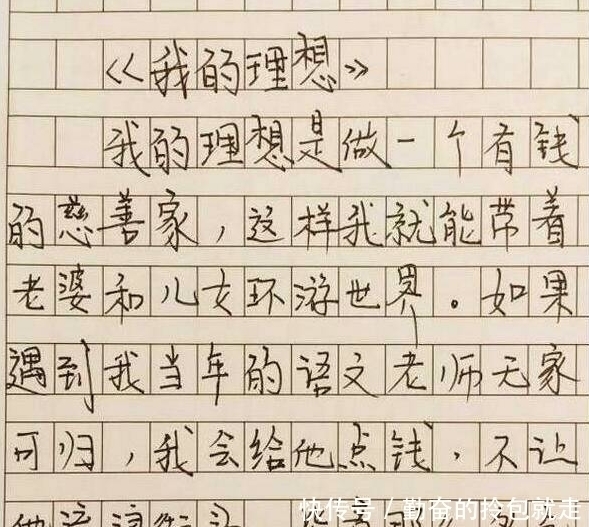 《我的理想》
我的理想是做一个有钱
的慈善家，这样我就能带着
老婆和儿女环游世界。如果
遇到我当年的语文老师无家
可归，我会给他点钱，不让
快传号 / 勤奋的拎包就走